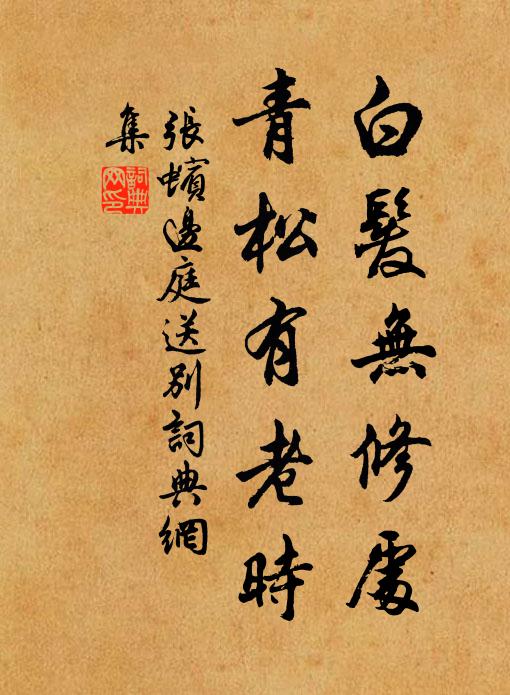 白髮無修處
青松有老時
張蠙邊庭送別詞典網
集
詞典
网印